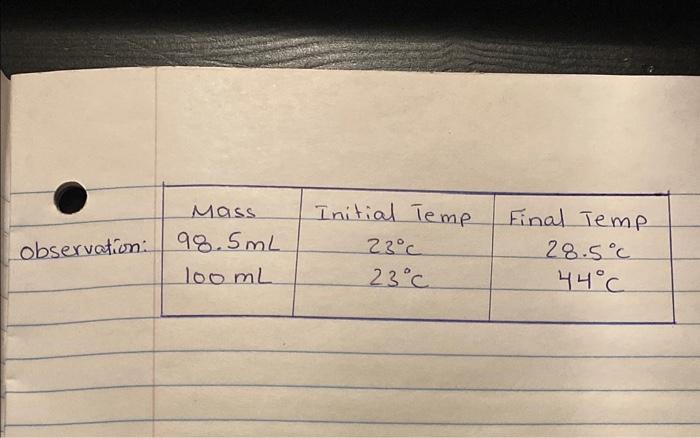 Mass Initial Temp Final Temp
observation: 98.5mL 23°c 28.5°c
100 mL 23°C 44°C